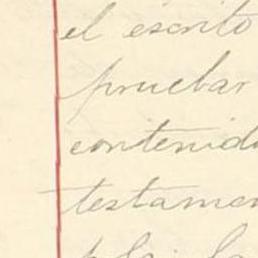 el escrito
pruebar
contenido
testamen